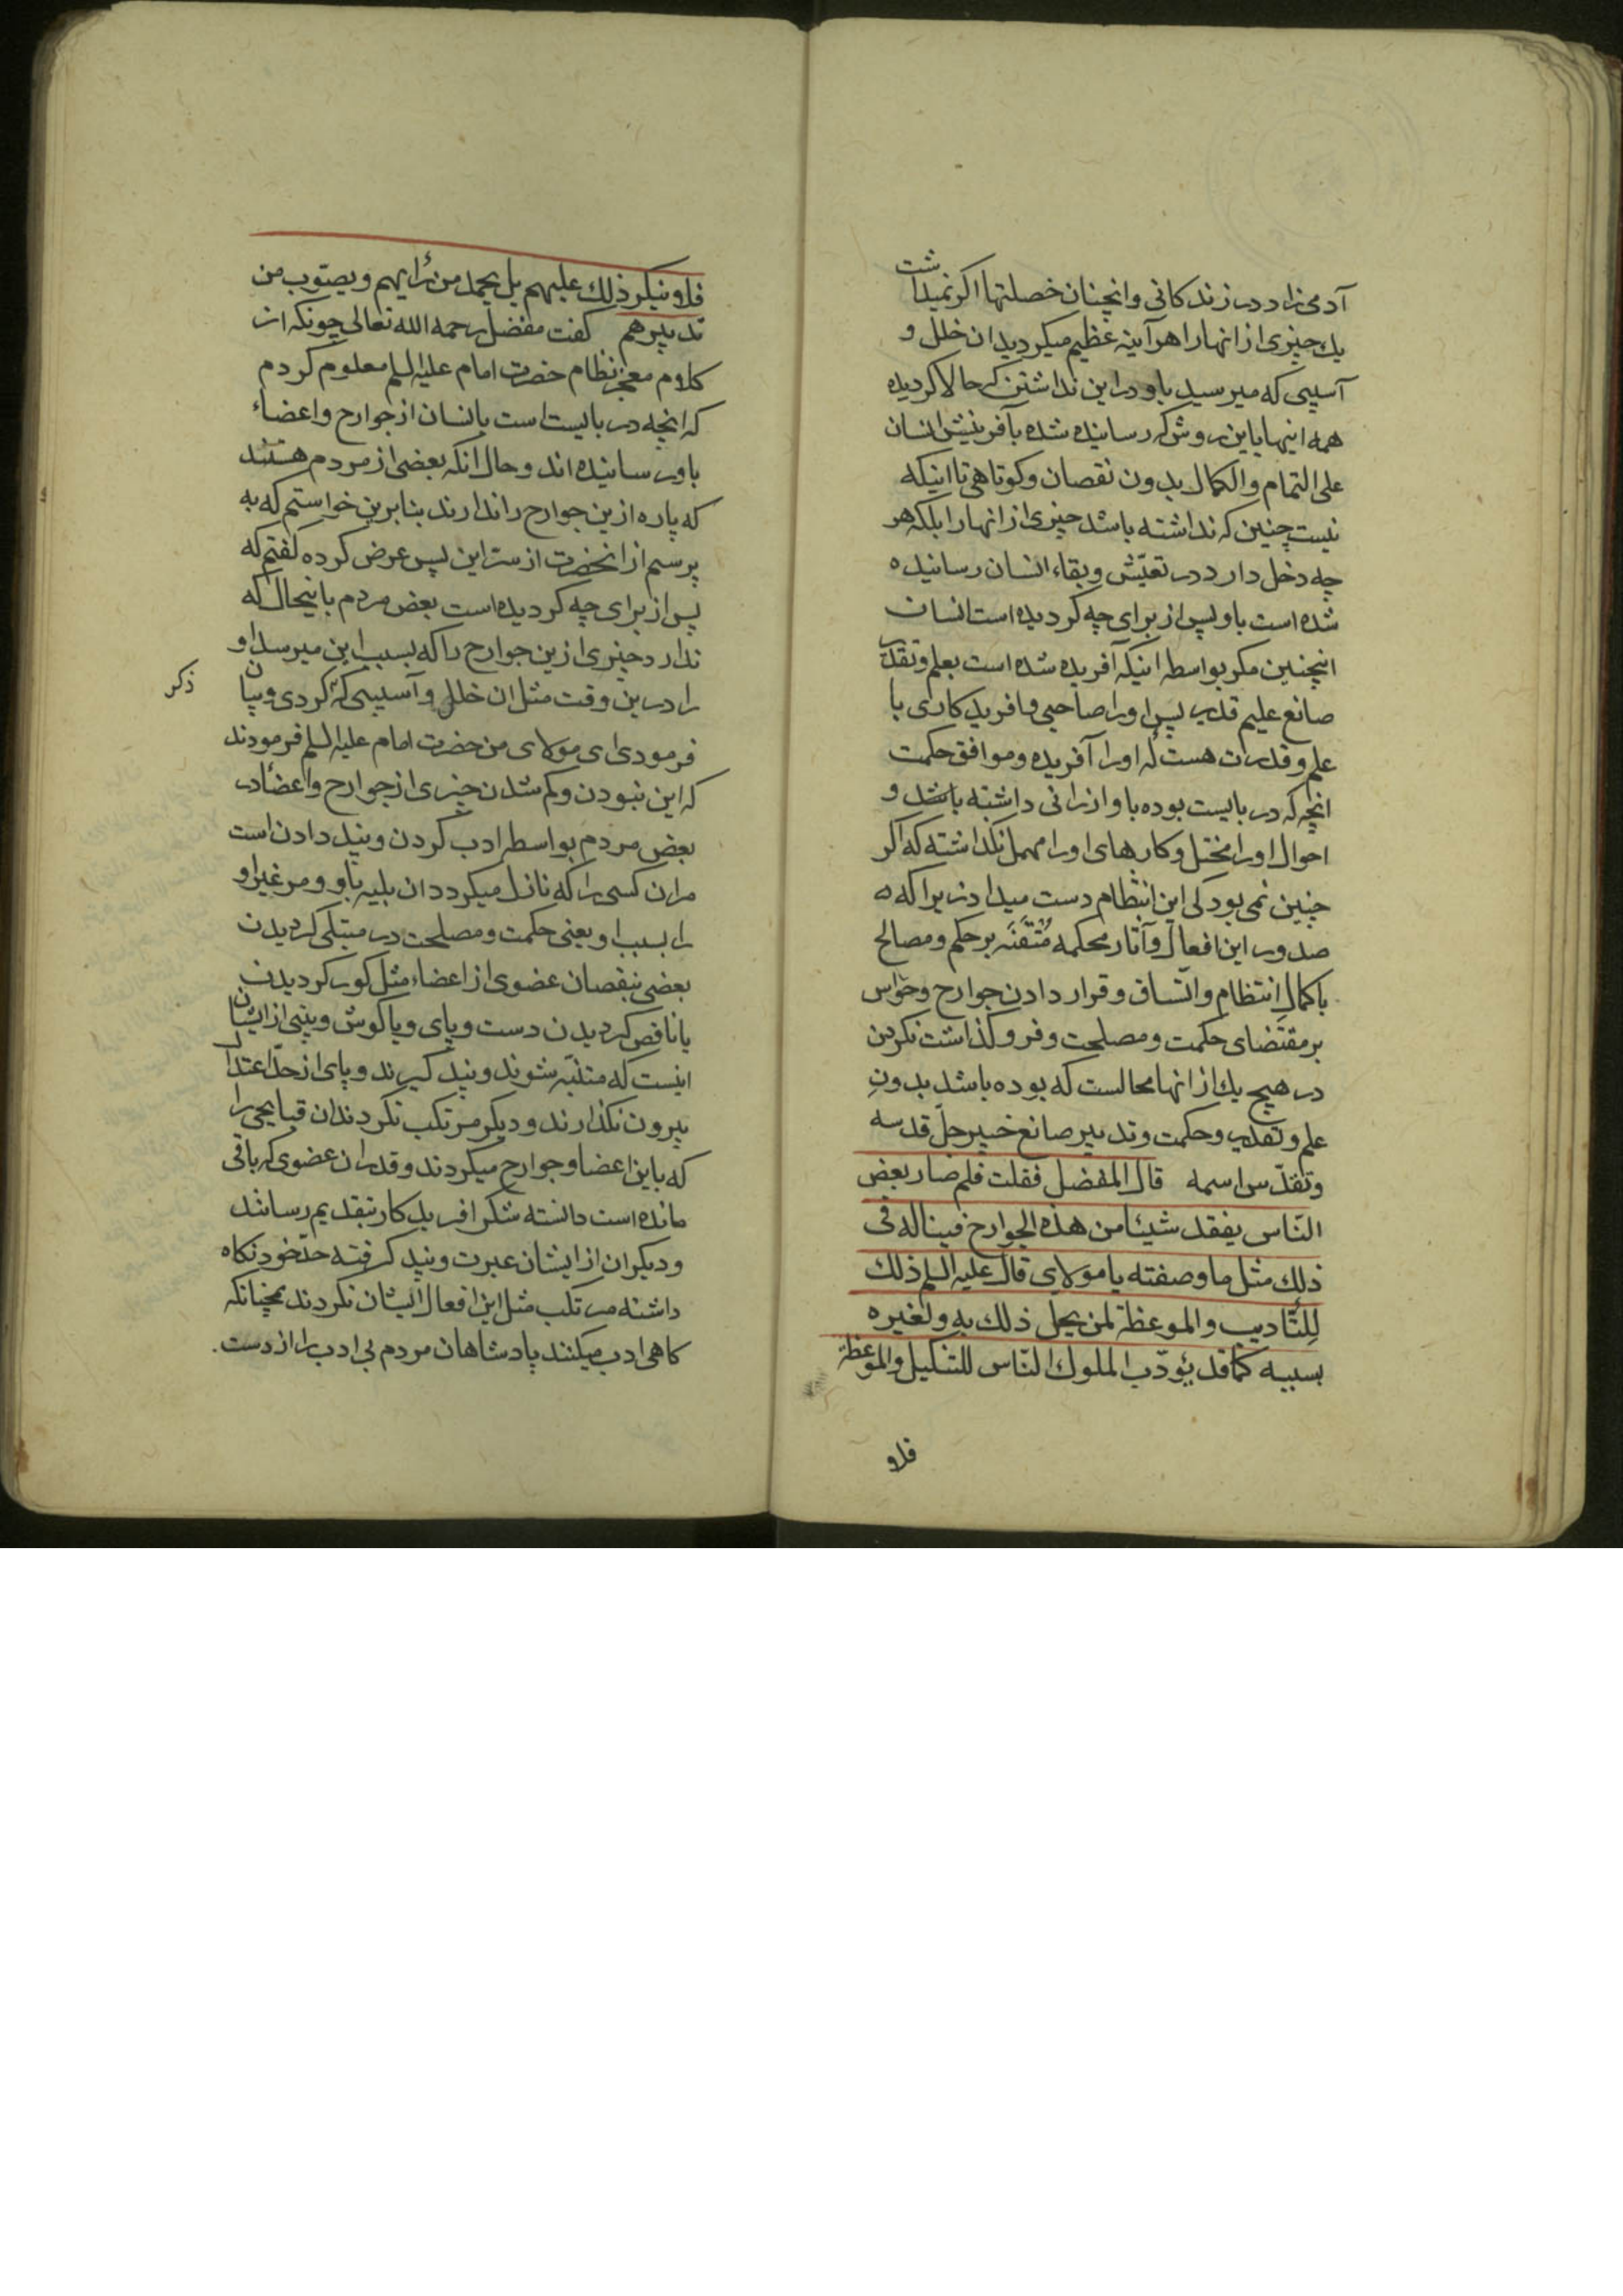 آدمی زاد در زندکانی وانچنان خصلتها اکر نمیداشت
یك چیزی از انها را هرآینه عظیم میکردید ان خلل و
آسیبی که میرسید باو در این نداشتن که حالا کردیده
همه اینها باین روش که رسانیده شده بآفرینش انسان
علی التمام والکمال بدون نقصان وکوتاهی تا اینکه
نیست چنین که نداشته باشد چیزی از انها را بلکه هر
چه دخل دارد در تعیّش وبقاء انسان رسانیده
شده است باو پس از برای چه کردیده است انسان
انچنین مکر بواسطه اینکه آفریده شده است بعلم وتقدیر
صانع علیم قدیر پس او را صاحبی وافریدکاری با
علم وقدرت هست که او را آفریده وموافق حکمت
انچه که در بایست بوده باو ارزانی داشته باشد و
احوال او را مختل وکارهای او را مهمل نکذاشته که اکر
چنین نمی بود کی این انتظام دست میداد زیرا که
صدور این افعال وآثار محکمه مُتْقَنَه بر حکم ومصالح
باکمالِ انتظام واتّساق وقرار دادن جوارح وحَواس
بر مقتَضای حکمت ومصلحت وفرو کذاشت نکردن
در هیچ یك از انها محالست که بوده باشد بدونِ
علم وتقدیر وحکمت وتدبیر صانع خبیر جلّ قدسه
وتقدّس اسمه قال المفضل فقلت فلم صار بعض
النّاس یفقد شیئا من هذه الجوارح فیناله فی
ذلك مثل ما وصفته یا مولای قال علیه السلم ذلك
لِلتَّادیب والموعظة لمن یحل ذلك به ولغیره
بسببه کما قد یؤدّب الملوك النّاس للتنکیل والموعظة
فلا
فلا ینکر ذلك علیهم بل یحمد من رَأیهم ویصوّب من
تدبیرهم کفت مفضل رحمه الله تعالی چونکه از
کلام معجز نظام حضرت امام علیه السلم معلوم کردم
که انچه در بایست است بانسان از جوارح واعضاء
باو رسانیده اند وحال انکه بعضی از مردم هستند
که پاره از ین جوارح را ندارند بنابرین خواستم که به
پرسم از انحضرت از سرّ این پس عرض کرده کفتم که
پس از برای چه کردیده است بعض مردم باینحال که
ندارد چیزی از ین جوارح را که بسبب این میرسد او
را در ین وقت مثل ان خلل وآسیبی که کردی وبیان
ذکر
فرمودی ای مولای من حضرت امام علیه السلم فرمودند
که این نبودن وکم شدن چیزی از جوارح واعضا در
بعض مردم بواسطه ادب کردن وپند دادن است
مر ان کسی را که نازل میکردد ان بلیه باو ومر غیر او
را بسبب او یعنی حکمت ومصلحت در مبتلی کردیدن
بعضی بنقصان عضوی از اعضاء مثل کور کردیدن
یا ناقص کردیدن دست وپای ویا کوش وبینی از ایشان
اینست که متنبّه شوند وپند کیرند وپای از حدّ اعتدال
بیرون نکذارند ودیکر مرتکب نکردند ان قبایحی را
که باین اعضا وجوارح میکردند وقدر ان عضوی که باقی
مانده است دانسته شکر افریدکار بتقدیم رسانند
ودیکران از ایشان عبرت وپند کرفته حدّ خود نکاه
داشته مرتکب مثل این افعال ایشان نکردند همچنانکه
کاهی ادب میکنند پادشاهان مردم بی ادب را از دست